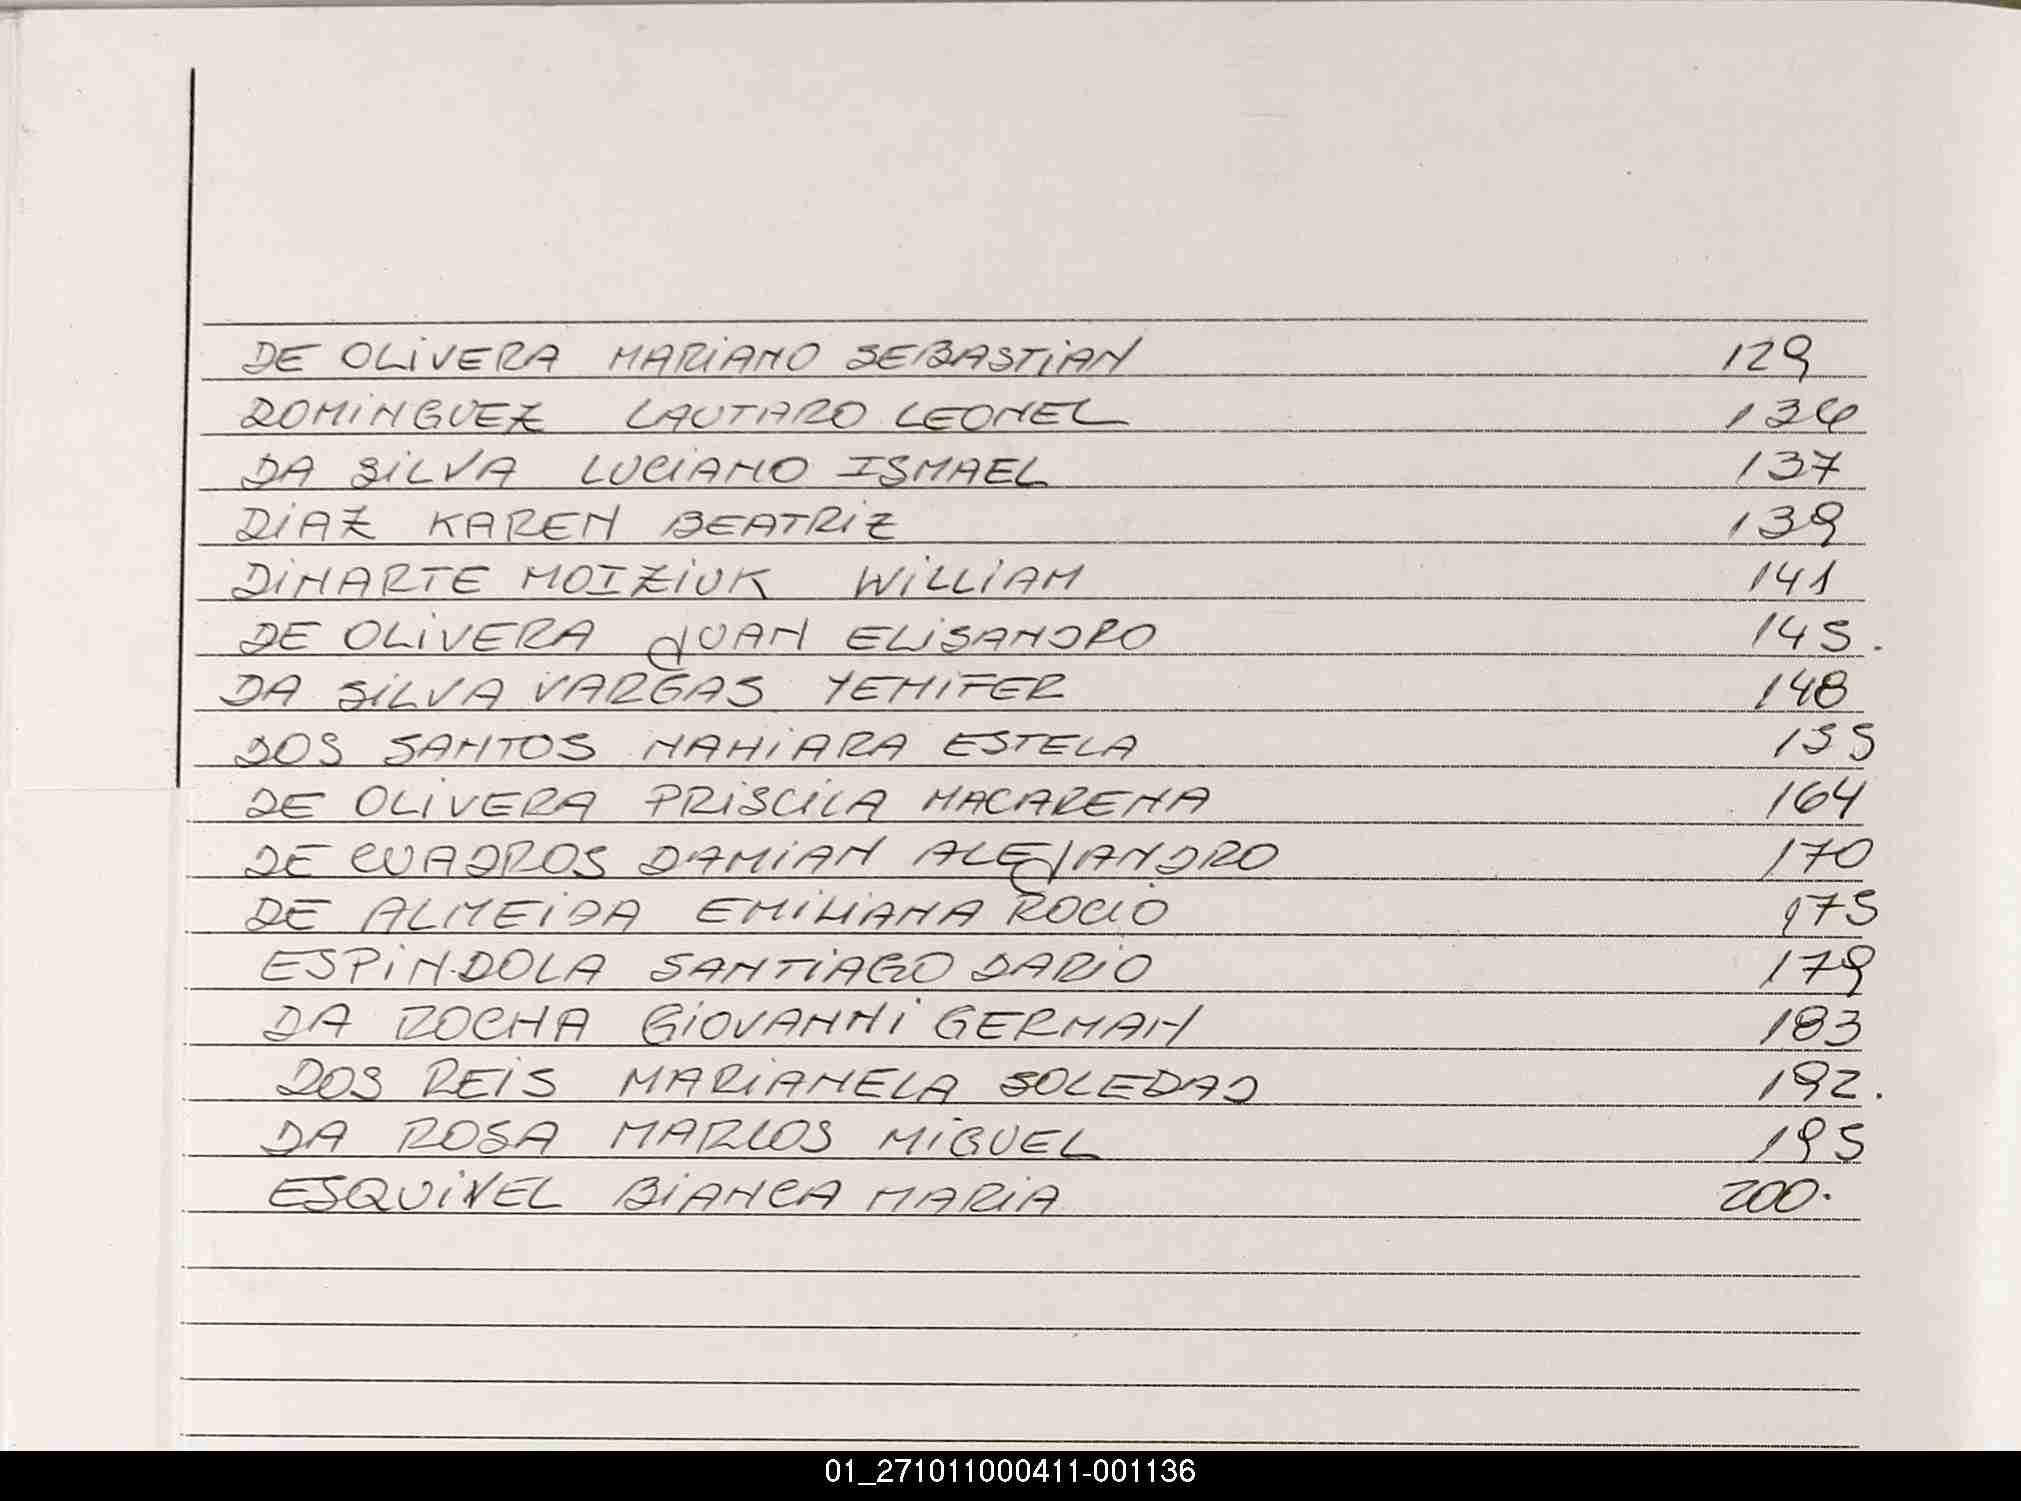 DE OLIVERA MARIANO SEBASTIAN 129
DOMINGUEZ LAUTARO LEONEL 136
DA SILVA LUCIANO ISMAEL 137
DIAZ KAREN BEATRIZ 139
DINARTE MOIZIUK WILLIAM 141
DE OLIVERA JUAN ELISANDRO 145.
DA SILVA VARGAS YENIFER 148
DOS SANTOS NAHIARA ESTELA 155
DE OLIVERA PRISCILA MACARENA 164
DE CUADROS DAMIAN ALEJANDRO 170
DE ALMEIDA EMILIANA ROCIO 175
ESPINDOLA SANTIAGO DARIO 179
DA ROCHA GIOVANNI GERMAN 183
DOS REIS MARIANELA SOLEDAD 192.
DA ROSA MARCOS MIGUEL 195
ESQUIVEL BIANCA MARIA 200.
01_271011000411-001136